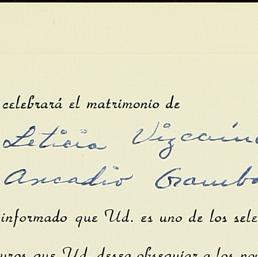 celebrará el matrimonio de
Leticia Vizcaín
Arcadio Gamb
informado que Ud. es uno de los sele
uros que Ud. desea obsequiar a los no